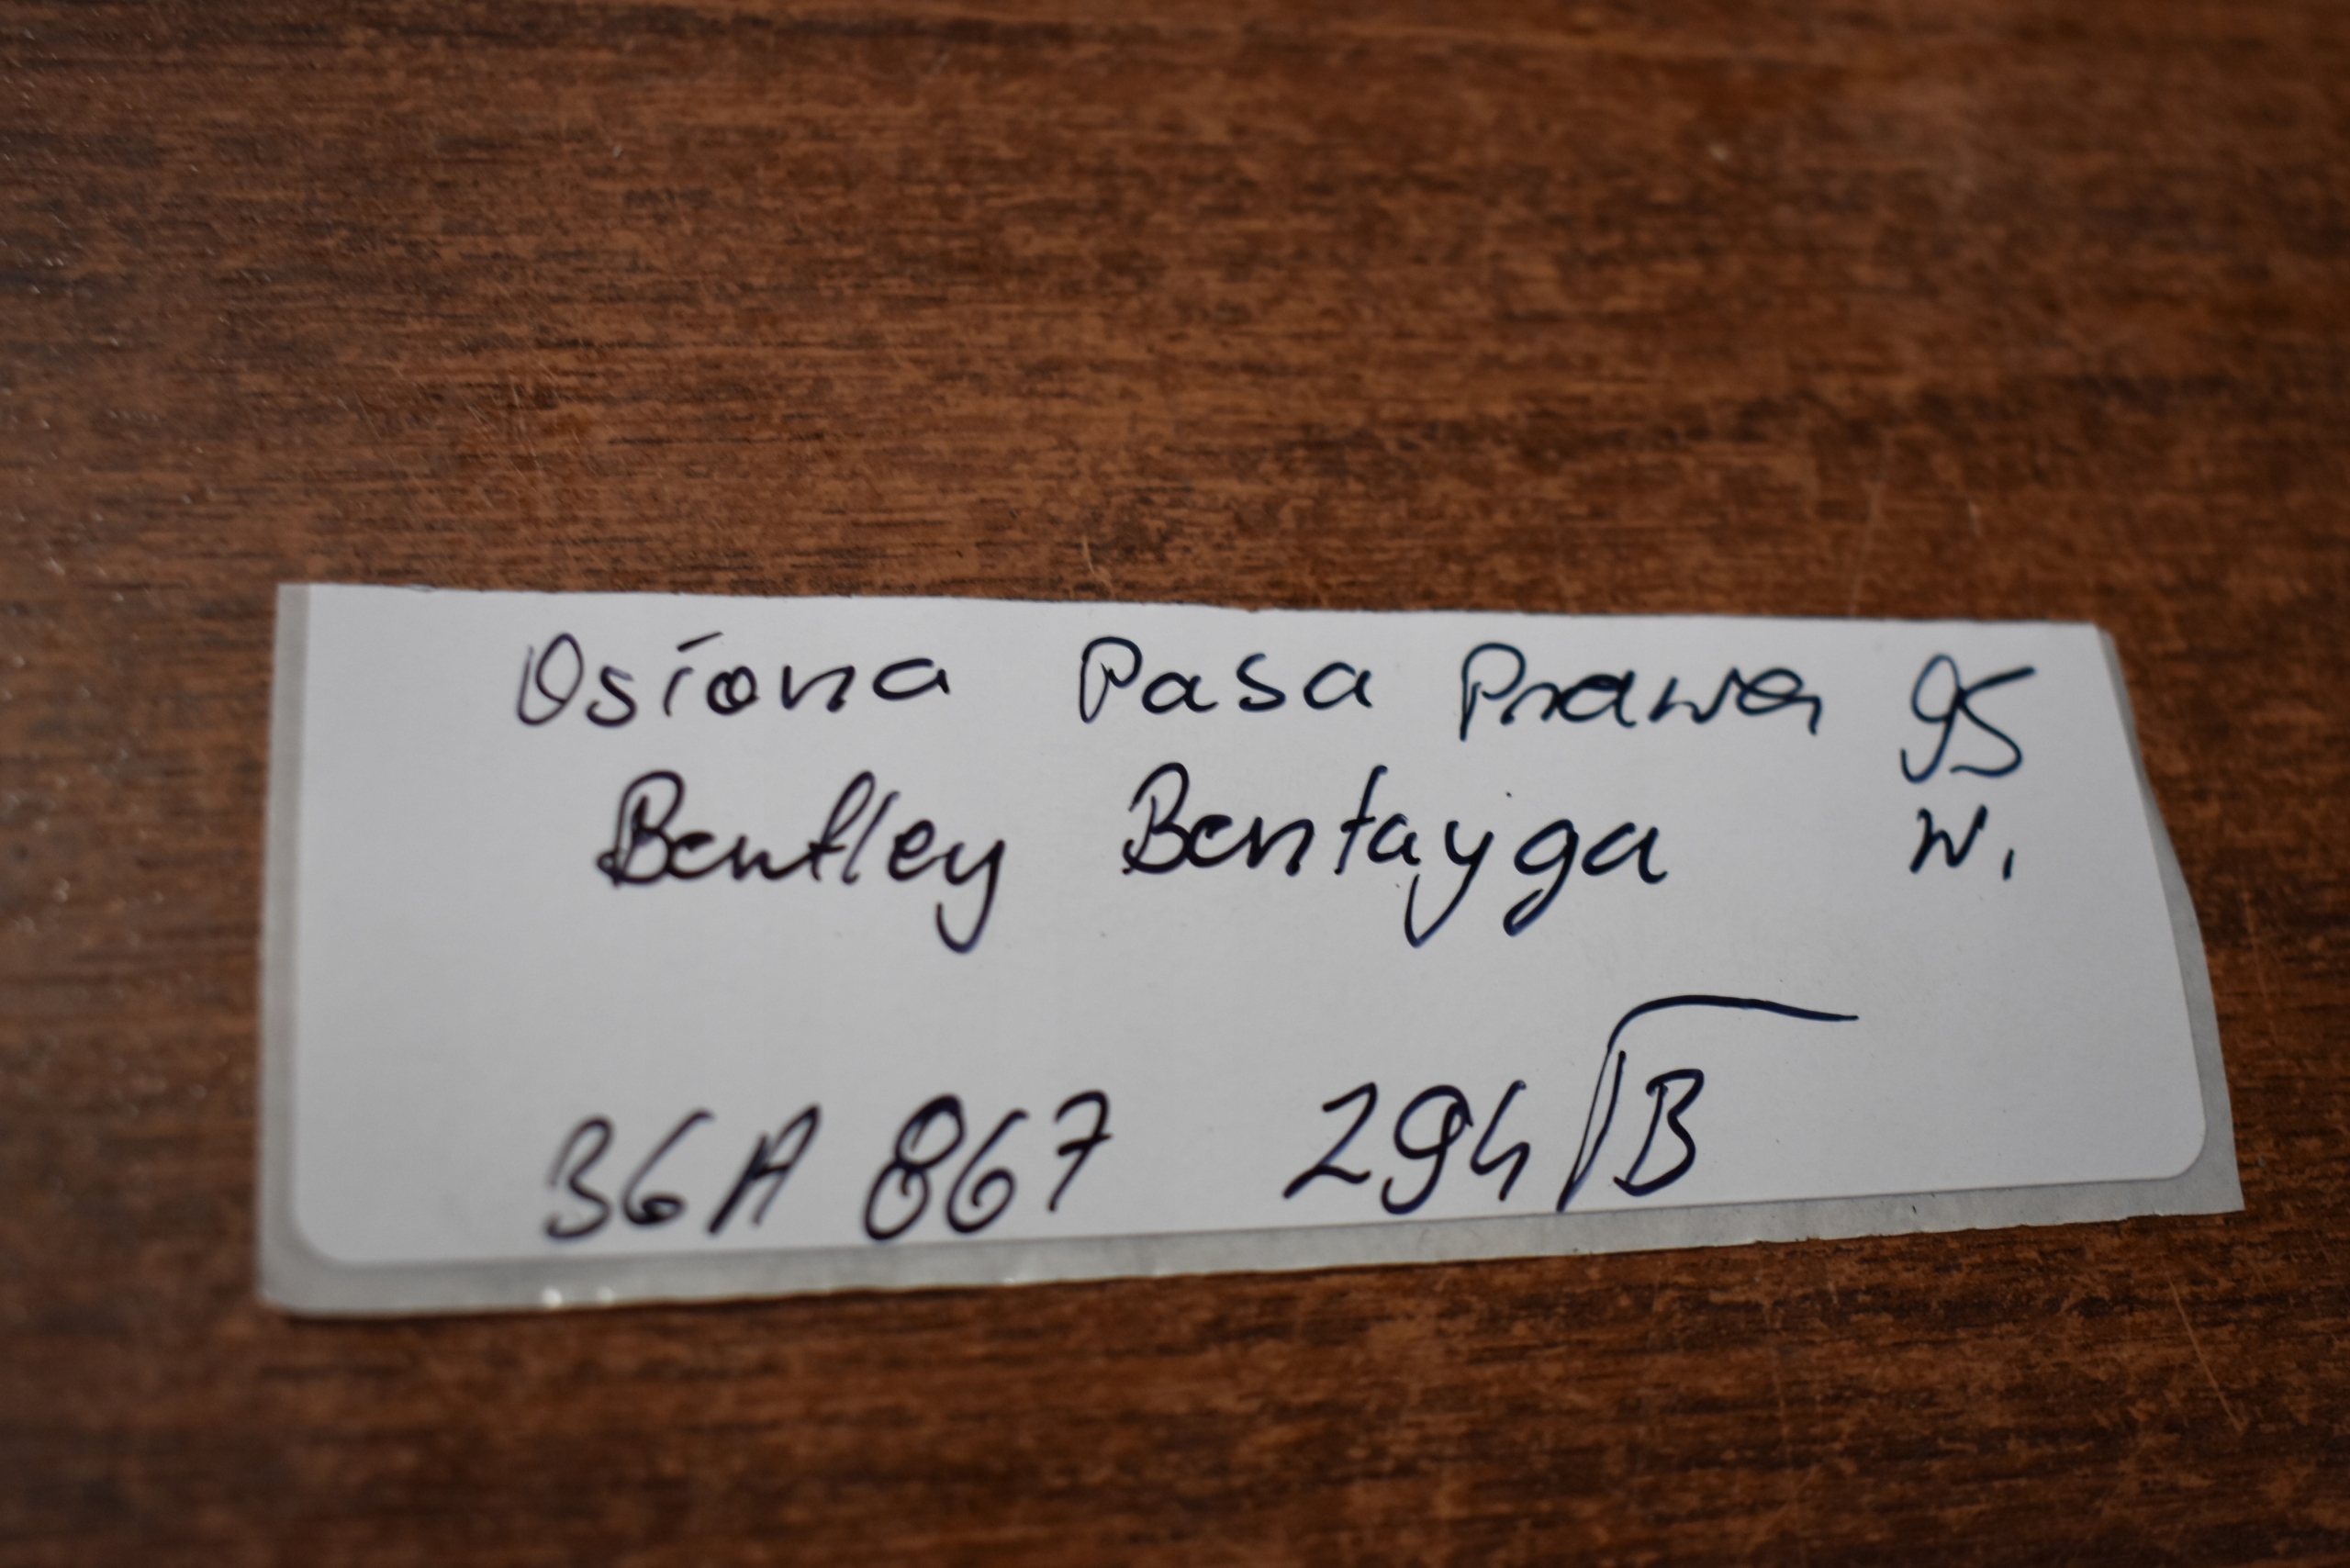 Osłona Pasa Prawa 95
Bentley Bentayga W.
36A 867 294 B